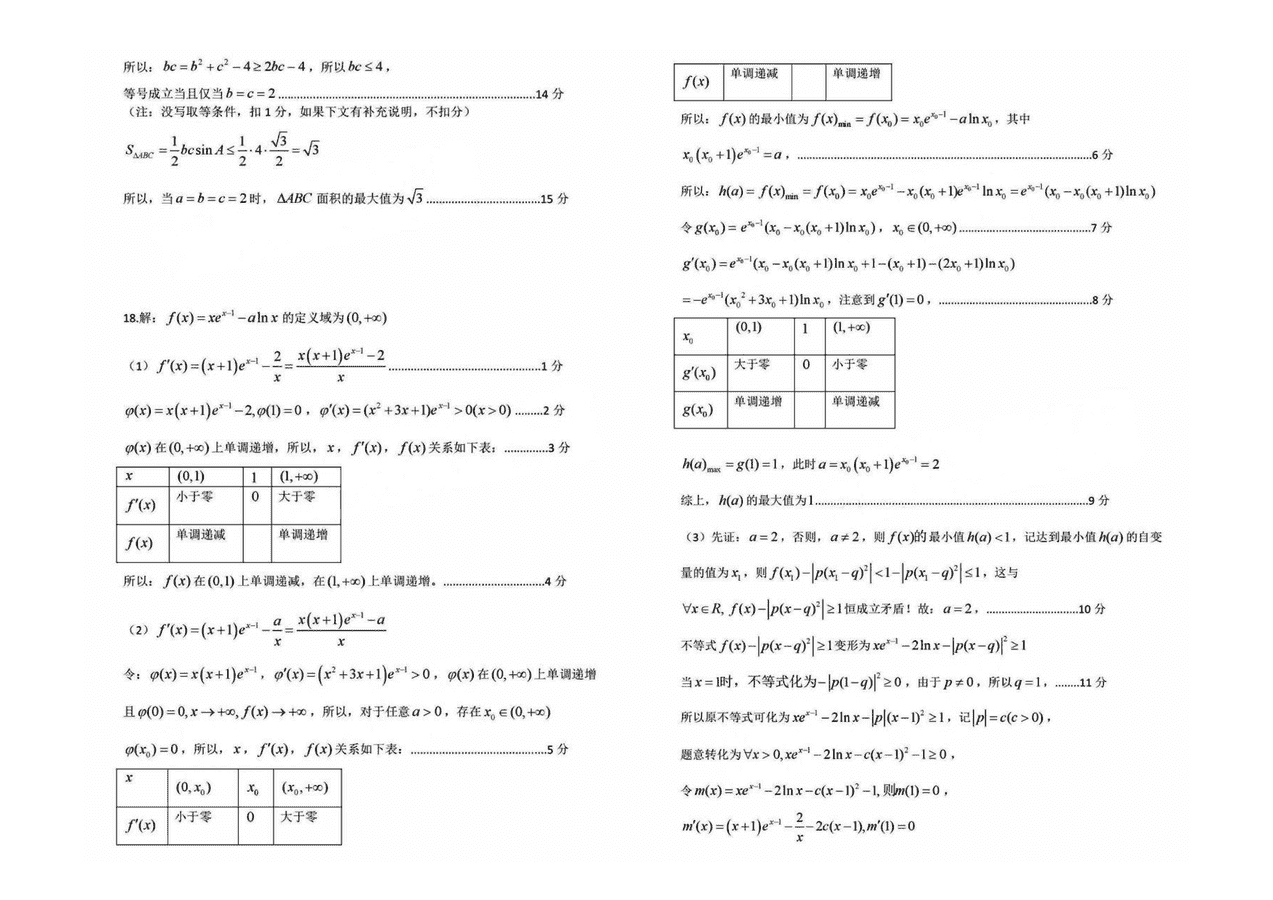 所以：bc=b²+c²-4≥2bc-4，所以bc≤4，
等号成立当且仅当b=c=2……………………………………14分
（注：没写取等条件，扣1分，如果下文有补充说明，不扣分）
S_{ΔABC}=\frac{1}{2}bcsin A≤\frac{1}{2}·4·\frac{√3}{2}=√3
所以，当a=b=c=2时，ΔABC 面积的最大值为√3……………………15分
18.解：f(x)=xe^{x-1}-aln x 的定义域为(0,+∞)
（1）f'(x)=(x+1)e^{x-1}-\frac{2}{x}=\frac{x(x+1)e^{x-1}-2}{x}……………………1分
φ(x)=x(x+1)e^{x-1}-2,φ(1)=0，φ'(x)=(x²+3x+1)e^{x-1}>0(x>0)………2分
φ(x)在(0,+∞)上单调递增，所以，x，f'(x)，f(x)关系如下表：…………3分
x (0,1) 1 (1,+∞)
f'(x) 小于零 0 大于零
f(x) 单调递减 单调递增
所以：f(x)在(0,1)上单调递减，在(1,+∞)上单调递增。……………………4分
（2）f'(x)=(x+1)e^{x-1}-\frac{a}{x}=\frac{x(x+1)e^{x-1}-a}{x}
令：φ(x)=x(x+1)e^{x-1}，φ'(x)=(x²+3x+1)e^{x-1}>0，φ(x)在(0,+∞)上单调递增
且φ(0)=0,x→+∞,f(x)→+∞，所以，对于任意a>0，存在x₀∈(0,+∞)
φ(x₀)=0，所以，x，f'(x)，f(x)关系如下表：……………………5分
x (0,x₀) x₀ (x₀,+∞)
f'(x) 小于零 0 大于零
f(x) 单调递减 单调递增
所以：f(x)的最小值为f(x)_{min}=f(x₀)=x₀e^{x₀-1}-aln x₀，其中
x₀(x₀+1)e^{x₀-1}=a，……………………………………6分
所以：h(a)=f(x)_{min}=f(x₀)=x₀e^{x₀-1}-x₀(x₀+1)e^{x₀-1}ln x₀=e^{x₀-1}(x₀-x₀(x₀+1)ln x₀)
令g(x₀)=e^{x₀-1}(x₀-x₀(x₀+1)ln x₀)，x₀∈(0,+∞)……………………7分
g'(x₀)=e^{x₀-1}(x₀-x₀(x₀+1)ln x₀+1-(x₀+1)-(2x₀+1)ln x₀)
=-e^{x₀-1}(x₀²+3x₀+1)ln x₀，注意到g'(1)=0，……………………8分
x₀ (0,1) 1 (1,+∞)
g'(x₀) 大于零 0 小于零
g(x₀) 单调递增 单调递减
h(a)_{max}=g(1)=1，此时a=x₀(x₀+1)e^{x₀-1}=2
综上，h(a)的最大值为1……………………………………9分
（3）先证：a=2，否则，a≠2，则f(x)的最小值h(a)<1，记达到最小值h(a)的自变
量的值为x₁，则f(x₁)-|p(x₁-q)²|<1-|p(x₁-q)²|≤1，这与
∀x∈R, f(x)-|p(x-q)²|≥1恒成立矛盾！故：a=2，……………………10分
不等式f(x)-|p(x-q)²|≥1变形为xe^{x-1}-2ln x-|p(x-q)|²≥1
当x=1时，不等式化为-|p(1-q)|²≥0，由于p≠0，所以q=1，………11分
所以原不等式可化为xe^{x-1}-2ln x-|p|(x-1)²≥1，记|p|=c(c>0)，
题意转化为∀x>0,xe^{x-1}-2ln x-c(x-1)²-1≥0，
令m(x)=xe^{x-1}-2ln x-c(x-1)²-1,则m(1)=0，
m'(x)=(x+1)e^{x-1}-\frac{2}{x}-2c(x-1),m'(1)=0